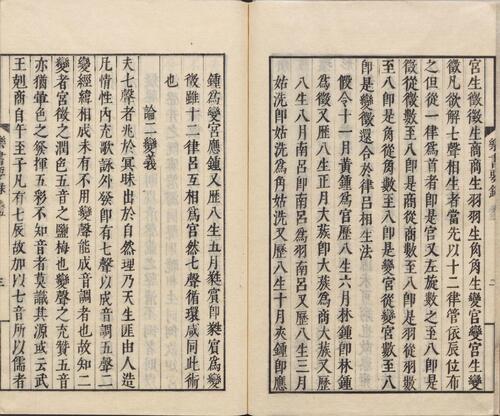 宮生徵徵生商商生羽羽生角角生變宮變宮生變
徵凡欲解七聲相生者當先以十二律管依辰位布
之但從一律爲首者即是宮又左旋數之至八即是
徵從徵數至八即是商從商數至八即是羽從羽數
至八即是角從角數至八即是變宮從變宮數至八
即是變徵還合於律呂相生法
假令十一月黃鍾爲宮歷八生六月林鍾即林鍾
爲徵又歷八生正月大蔟即大蔟爲商大蔟又歷
八生八月南呂即南呂爲羽南呂又歷八生三月
姑洗即姑洗爲角姑洗又歷八生十月夾鍾即應
鍾爲變宮應鍾又歷八生五月蕤賓即蕤賓爲變
徵雖十二律呂互相爲宮然七聲循環咸同此術
也
論二變義
夫七聲者兆於冥昧出於自然理乃天生匪由人造
凡情性內充歌詠外發即有七聲以成音調五聲二
變經緯相成未有不用變聲能成音調者也故知二
變者宮徵之潤色五音之鹽梅也變聲之充贊五音
亦猶暈色之發揮五彩不知音者莫識其源或云武
王剋商自午至子凡有七辰故加以七音所以儒者
樂書要錄
二
三